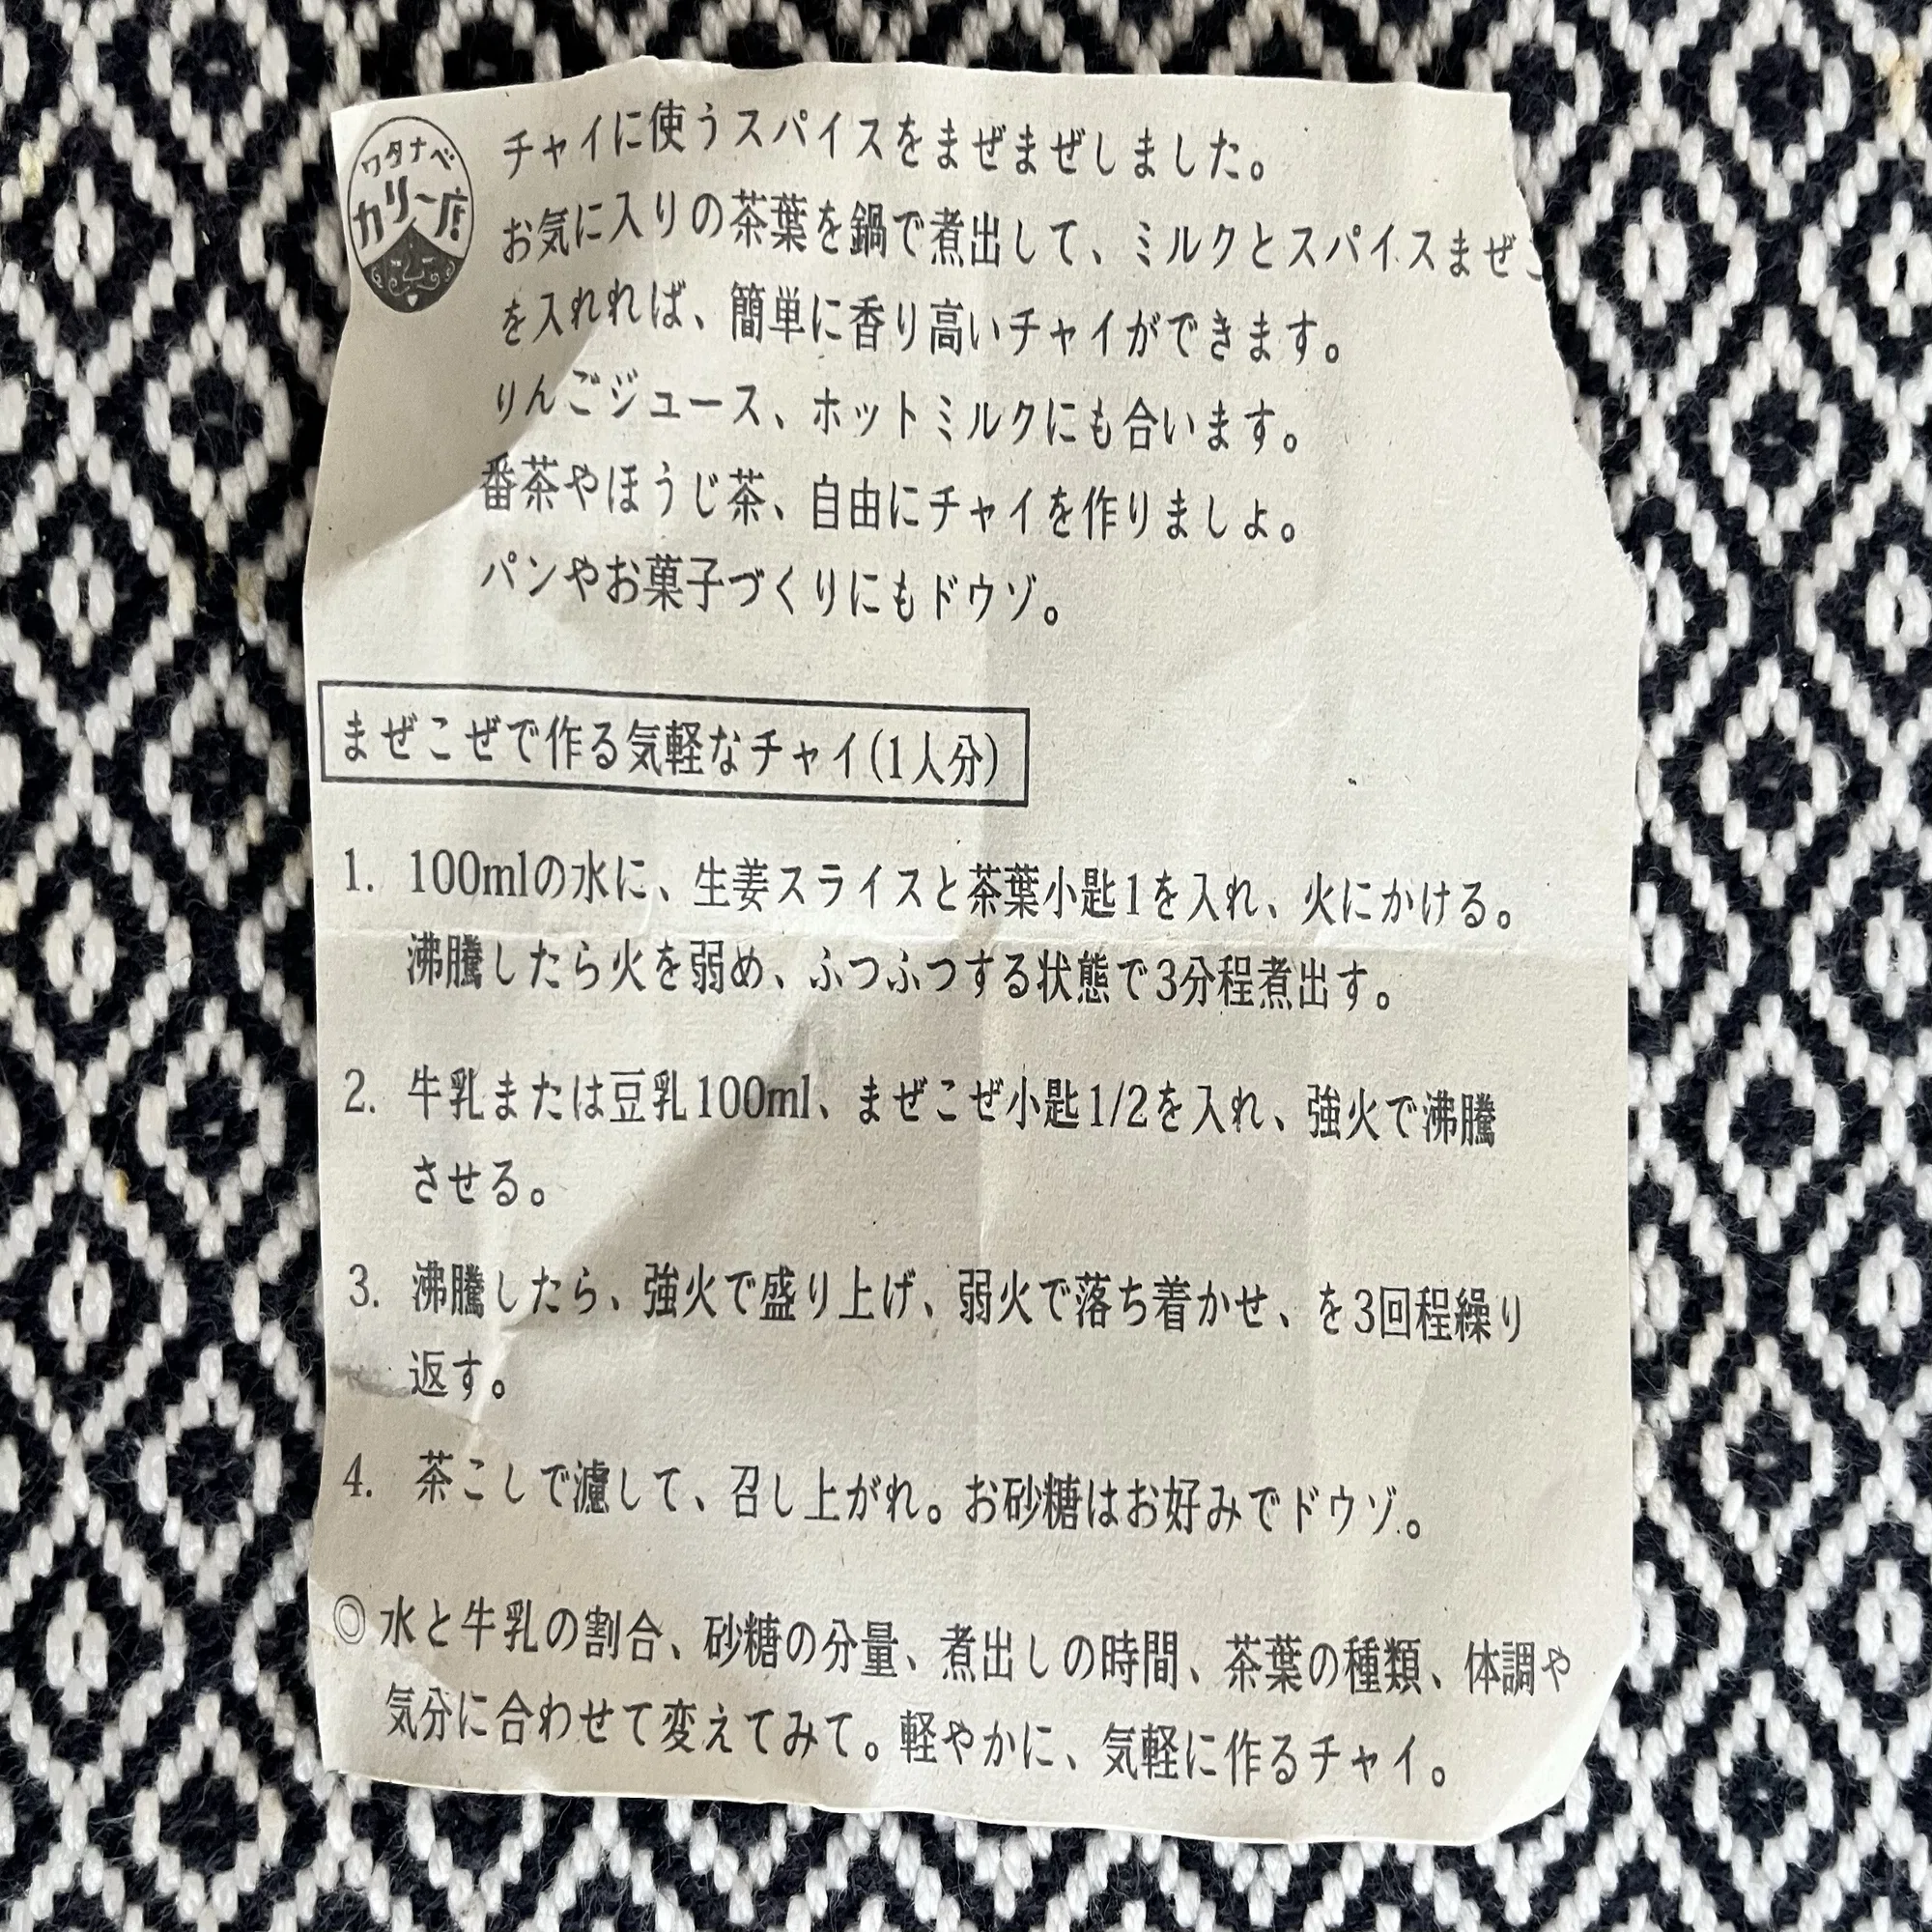 ワタナベ
カリー店
チャイに使うスパイスをまぜまぜしました。
お気に入りの茶葉を鍋で煮出して、ミルクとスパイスまぜこ
を入れれば、簡単に香り高いチャイができます。
りんごジュース、ホットミルクにも合います。
番茶やほうじ茶、自由にチャイを作りましょ。
パンやお菓子づくりにもドウゾ。
まぜこぜで作る気軽なチャイ(1人分)
1. 100mlの水に、生姜スライスと茶葉小匙1を入れ、火にかける。
沸騰したら火を弱め、ふつふつする状態で3分程煮出す。
2. 牛乳または豆乳100ml、まぜこぜ小匙1/2を入れ、強火で沸騰
させる。
3. 沸騰したら、強火で盛り上げ、弱火で落ち着かせ、を3回程繰り
返す。
4. 茶こしで濾して、召し上がれ。お砂糖はお好みでドウゾ。
◎水と牛乳の割合、砂糖の分量、煮出しの時間、茶葉の種類、体調や
気分に合わせて変えてみて。軽やかに、気軽に作るチャイ。